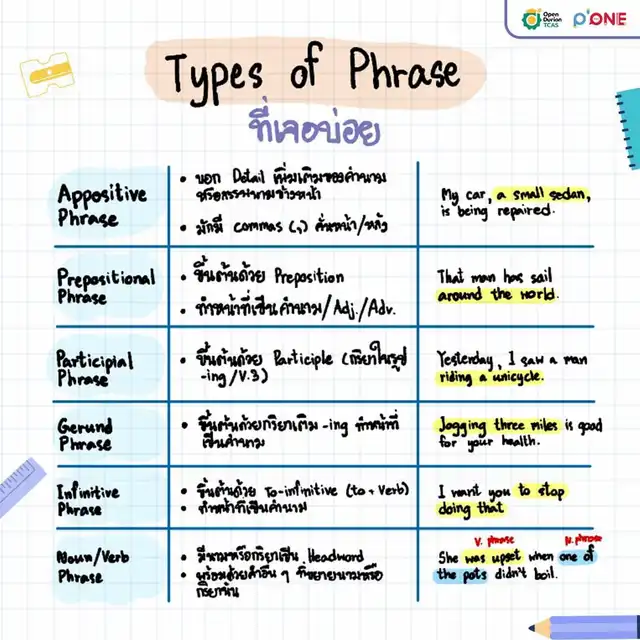 Open
Durian
TCAS
P'ONE
Types of Phrase
ที่เจอบ่อย
Appositive
Phrase
• บอก Detail เพิ่มเติมของคำนาม
หรือสรรพนามข้างหน้า
• มักมี commas (,) คั่นหน้า/หลัง
My car, a small sedan,
is being repaired.
Prepositional
Phrase
• ขึ้นต้นด้วย Preposition
• ทำหน้าที่เป็นคำนาม/Adj./Adv.
That man has sail
around the world.
Participial
Phrase
• ขึ้นต้นด้วย Participle (กริยาในรูป
-ing/V.3)
Yesterday, I saw a man
riding a unicycle.
Gerund
Phrase
• ขึ้นต้นด้วยกริยาเติม -ing ทำหน้าที่
เป็นคำนาม
Jogging three miles is good
for your health.
Infinitive
Phrase
• ขึ้นต้นด้วย To-infinitive (to + Verb)
• ทำหน้าที่เป็นคำนาม
I want you to stop
doing that
Noun/Verb
Phrase
• มีนามหรือกริยาเป็น Headword
• พร้อมด้วยคำอื่น ๆ ที่ขยายนามหรือ
กริยานั้น
V. phrase
N. phrase
She was upset when one of
the pots didn't boil.